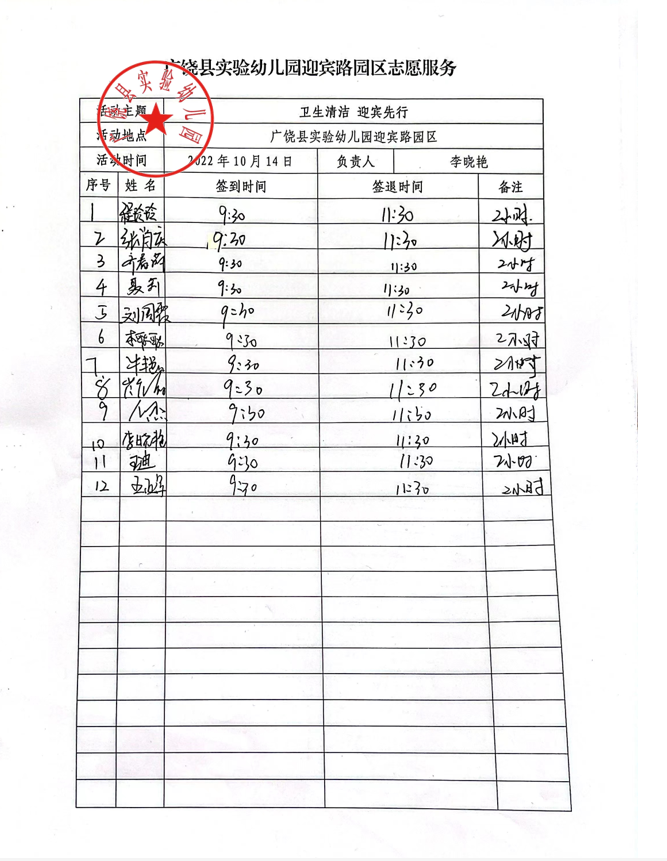 广饶县实验幼儿园迎宾路园区志愿服务
活动主题 卫生清洁 迎宾先行
活动地点 广饶县实验幼儿园迎宾路园区
活动时间 2022年10月14日 负责人 李晓艳
序号 姓名 签到时间 签退时间 备注
1 9:30 11:30 2小时
2 张肖庆 9:30 11:30 2小时
3 9:30 11:30 2小时
4 9:30 11:30 2小时
5 刘国霞 9:30 11:30 2小时
6 9:30 11:30 2小时
7 9:30 11:30 2小时
8 9:30 11:30 2小时
9 9:30 11:30 2小时
10 李晓艳 9:30 11:30 2小时
11 王迪 9:30 11:30 2小时
12 9:30 11:30 2小时